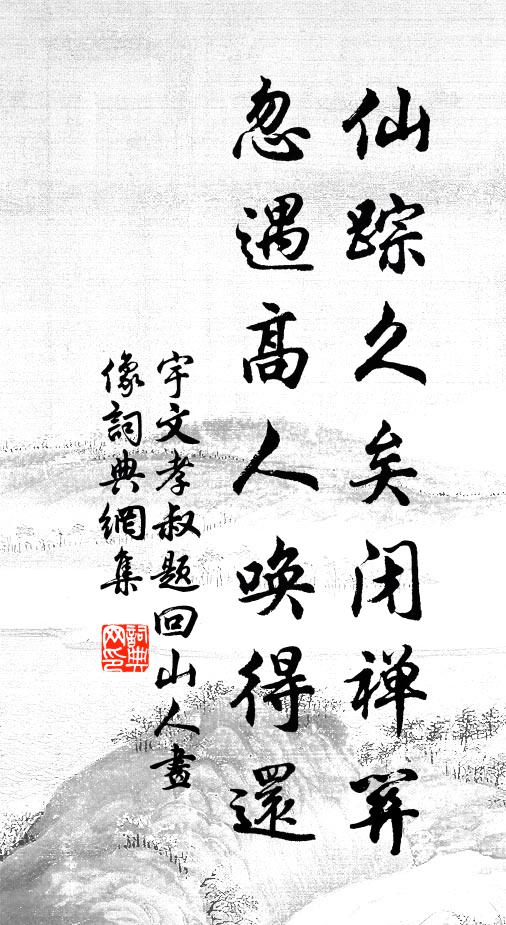 仙踪久矣闭禅关
忽遇高人唤得還
宇文孝叔题回山人畫
像詞典網集
詞典网印